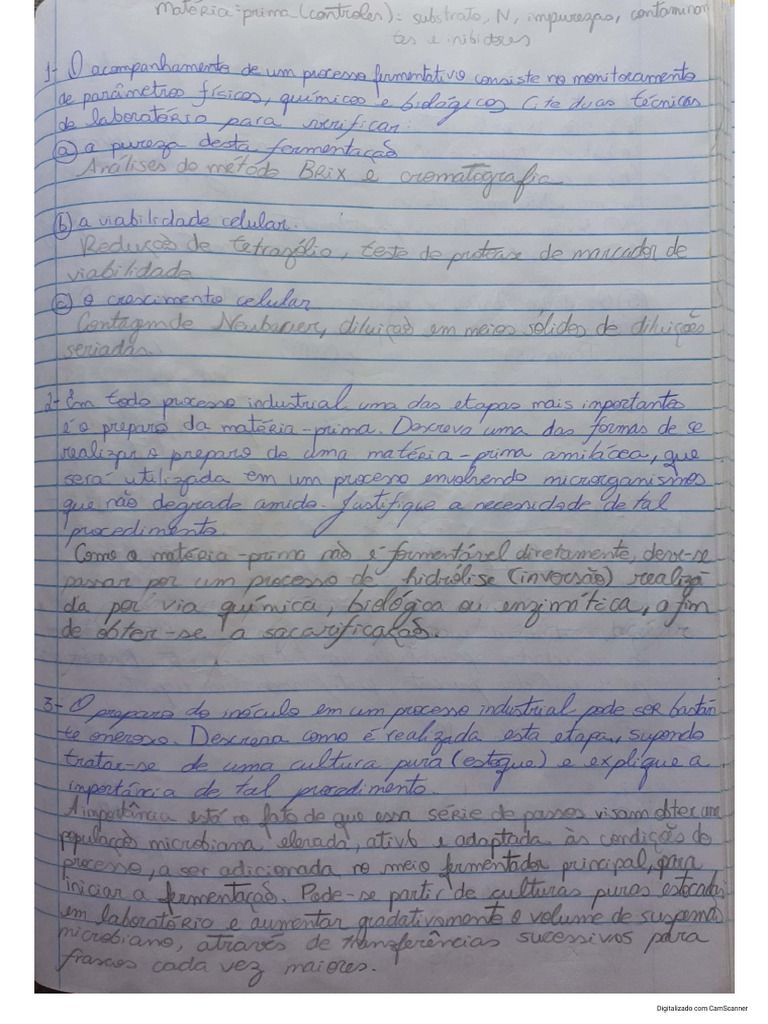 Matéria-prima (controles): substrato, N, impurezas, contaminan
tes e inibidores
1- O acompanhamento de um processo fermentativo consiste no monitoramento
de parâmetros físicos, químicos e biológicos. Cite duas técnicas
de laboratório para verificar:
(a) a pureza desta fermentação
Análises do método BRIX e cromatografia
(b) a viabilidade celular.
Redução de tetrazólio, teste de protease de marcador de
viabilidade
(c) o crescimento celular
Contagem de Neubauer, diluição em meios sólidos de diluições
seriadas.
2- Em todo processo industrial uma das etapas mais importantes
é o preparo da matéria-prima. Descreva uma das formas de se
realizar o preparo de uma matéria-prima amilácea, que
será utilizada em um processo envolvendo microrganismos
que não degrade amido. Justifique a necessidade de tal
procedimento.
Como a matéria-prima não é fermentável diretamente, deve-se
passar por um processo de hidrólise (inversão) realiza
da por via química, biológica ou enzimática, a fim
de obter-se a sacarificação.
3- O preparo do inóculo em um processo industrial pode ser bastan
te oneroso. Descreva como é realizada esta etapa, supondo
tratar-se de uma cultura pura (estoque) e explique a
importância de tal procedimento.
A importância está no fato de que essa série de passos visam obter uma
população microbiana elevada, ativa e adaptada às condições do
processo, a ser adicionada no meio fermentador principal, para
iniciar a fermentação. Pode-se partir de culturas puras estocadas
em laboratório e aumentar gradativamente o volume de suspensão
microbiano, através de transferências sucessivos para
frascos cada vez maiores.
Digitalizado com CamScanner